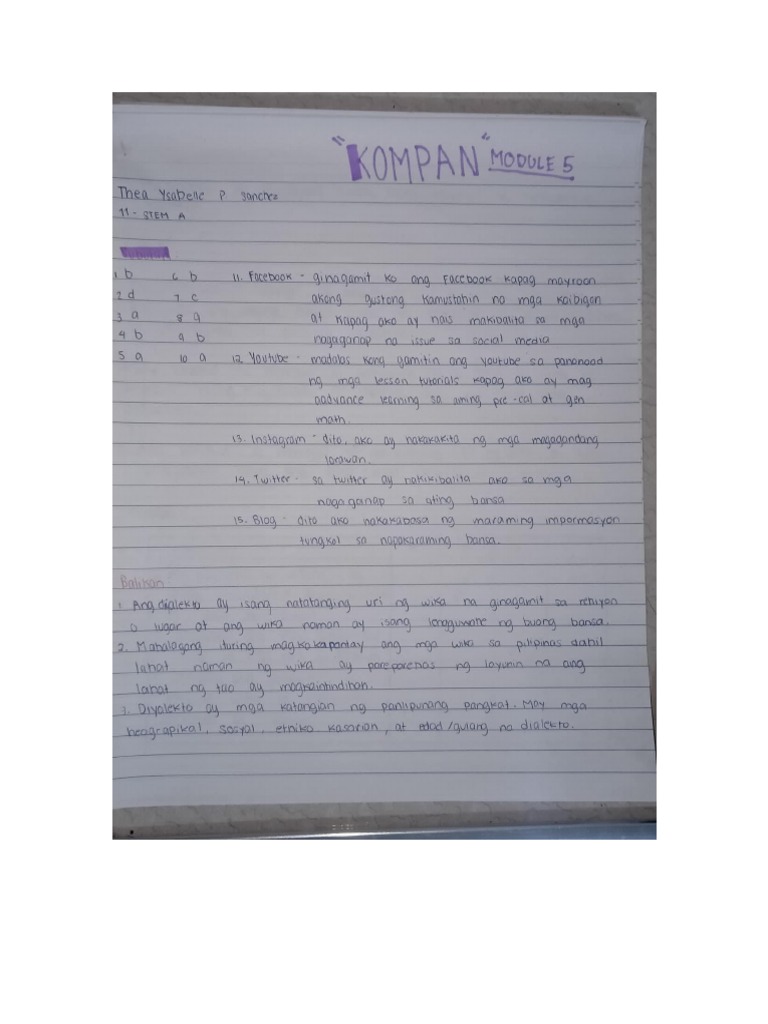 "KOMPAN" MODULE 5
Thea Ysabelle P. Sanchez
11 - STEM A
1 b 6 b 11. Facebook - ginagamit ko ang Facebook kapag mayroon
2 d 7 c akong gustong kamustahin na mga kaibigan
3 a 8 a at kapag ako ay nais makibalita sa mga
4 b 9 b nagaganap na issue sa social media
5 a 10 a 12. Youtube - madalas kong gamitin ang youtube sa panonood
ng mga lesson tutorials kapag ako ay mag
aadvance learning sa aming pre-cal at gen
math.
13. Instagram - dito, ako ay nakakakita ng mga magagandang
larawan.
14. Twitter - sa twitter ay nakikibalita ako sa mga
nagaganap sa ating bansa
15. Blog - dito ako nakakabasa ng maraming impormasyon
tungkol sa napakaraming bansa.
Balikan:
1. Ang dialekto ay isang natatanging uri ng wika na ginagamit sa rehiyon
o lugar at ang wika naman ay isang lengguwahe ng buong bansa.
2. Mahalagang ituring magkakapantay ang mga wika sa pilipinas dahil
lahat naman ng wika ay parepareho ng layunin na ang
lahat ng tao ay magkaintindihan.
3. Diyalekto ay mga katangian ng panlipunang pangkat. May mga
heograpikal, sosyal, etniko kasarian, at edad/gulang na dialekto.